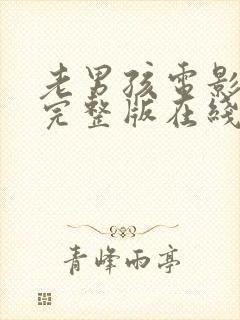 老男孩电影
完整版在线
青峰雨亭